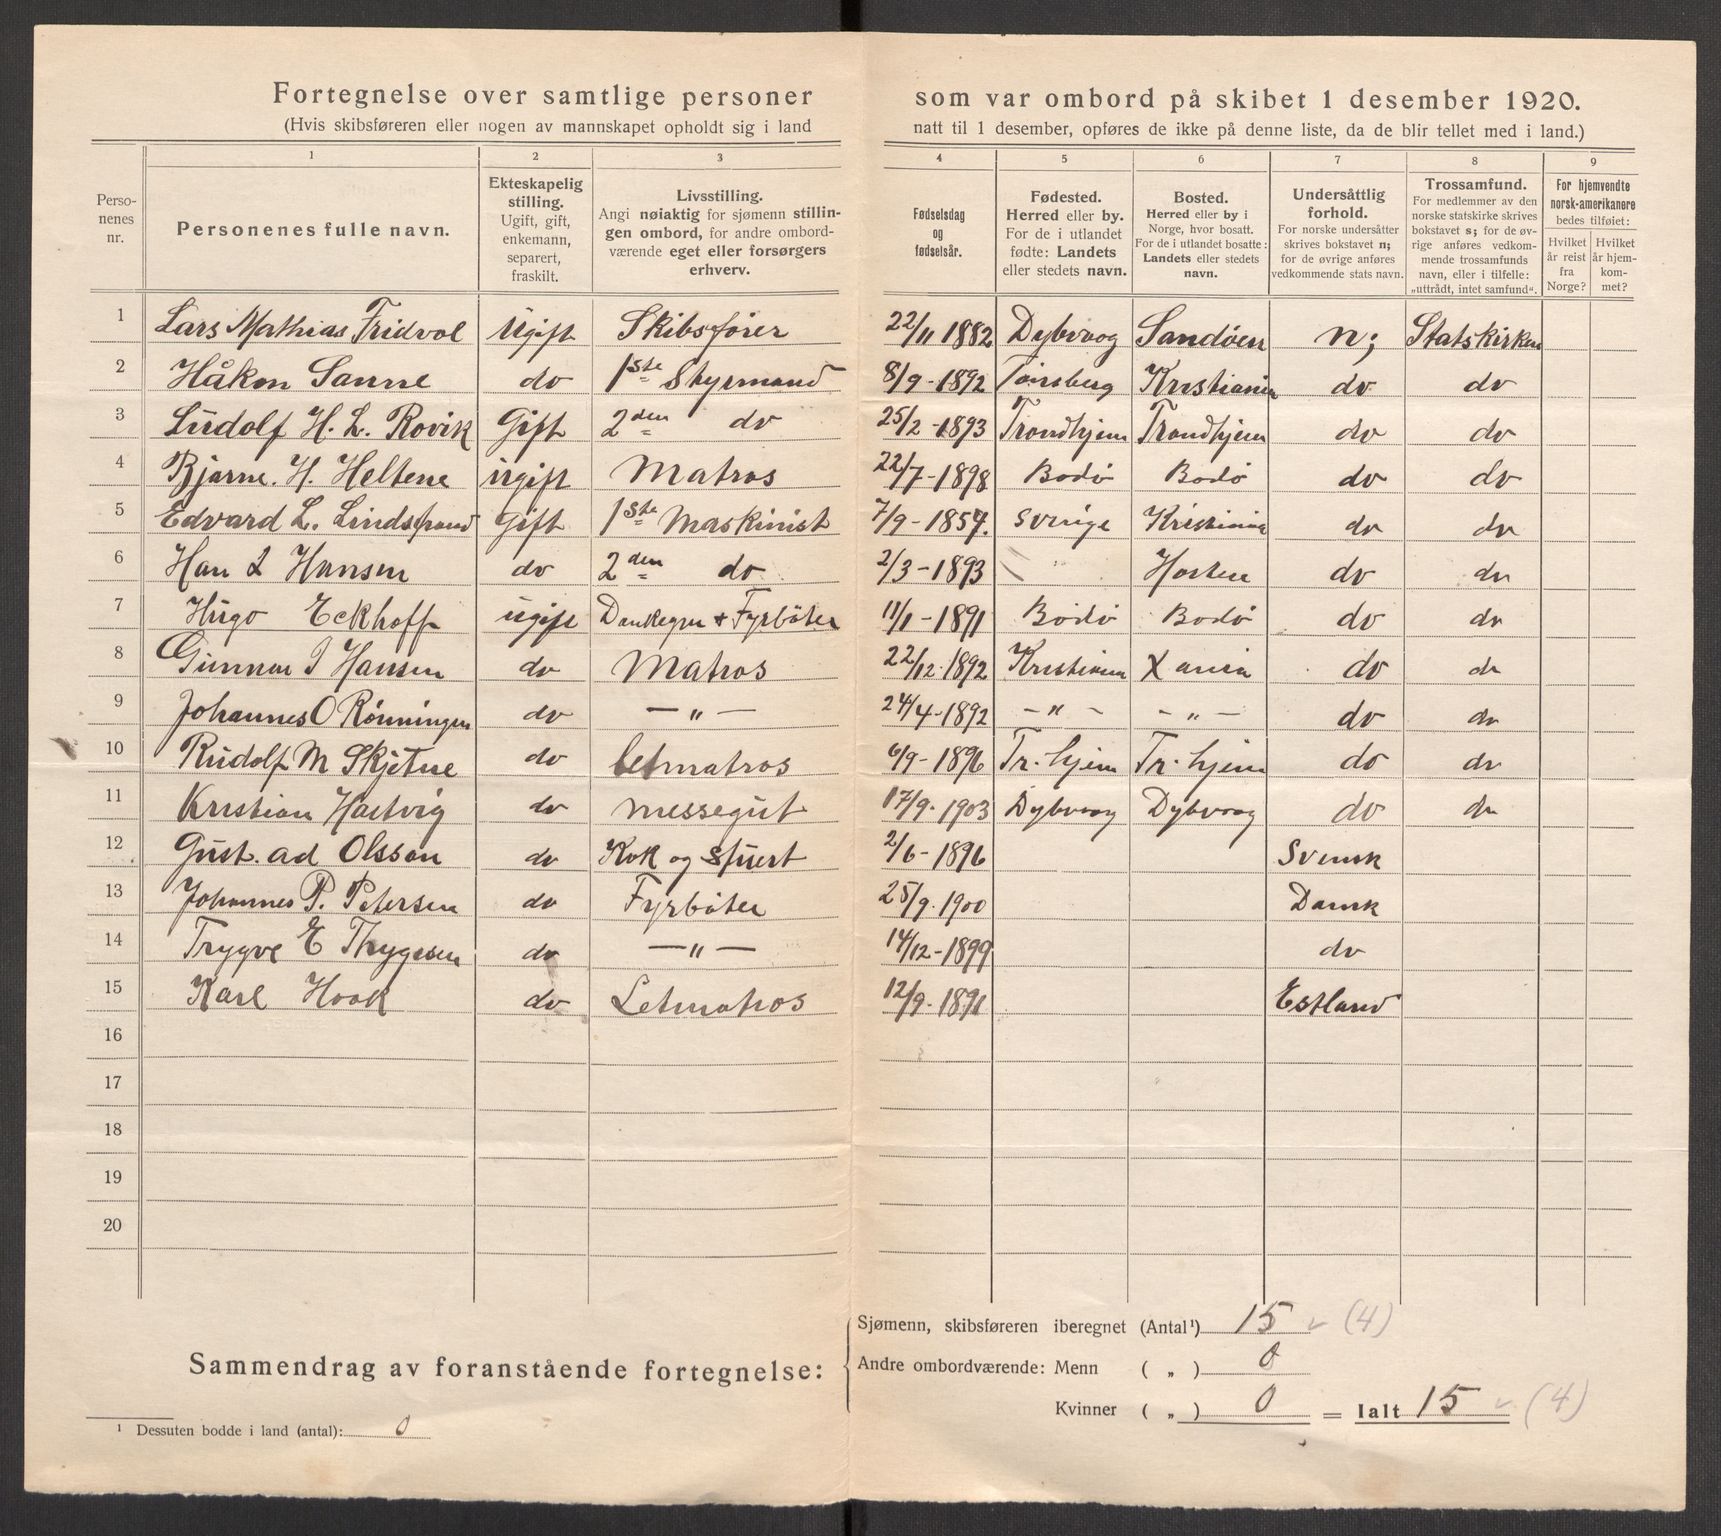 Fortegnelse over samtlige personer som var ombord på skibet 1 desember 1920.
(Hvis skibsføreren eller nogen av mannskapet opholdt sig i land natt til 1 desember, opføres de ikke på denne liste, da de blir tellet med i land.)
1 2 3 4 5 6 7 8 9
Perso-
nenes
nr.
Personenes fulle navn.
Ekteskapelig
stilling.
Ugift, gift,
enkemann,
separert,
fraskilt.
Livsstilling.
Angi nøiaktig for sjømenn stillin-
gen ombord, for andre ombord-
værende eget eller forsørgers
erhverv.
Fødselsdag
og
fødselsår.
Fødested.
Herred eller by.
For de i utlandet
fødte: Landets
eller stedets navn.
Bosted.
Herred eller by i
Norge, hvor bosatt.
For de i utlandet bosatte:
Landets eller stedets
navn.
Undersåttlig
forhold.
For norske undersåtter
skrives bokstavet n;
for de øvrige anføres
vedkommende stats navn.
Trossamfund.
For medlemmer av den
norske statskirke skrives
bokstavet s; for de øv-
rige anføres vedkom-
mende trossamfunds
navn, eller i tilfelle:
„uttrådt, intet samfund“.
For hjemvendte
norsk-amerikanere
bedes tilføiet:
Hvilket
år reist
fra
Norge?
Hvilket
år hjem-
kom-
met?
1 Lars Mathias Fridvol Ugift Skibsfører 22/11 1882 Dybvaag Sandøen n; Statskirken
2 Håkon Sanne do 1ste Styrmand 8/9-1892 Tønsberg Kristiania do do
3 Ludolf H. L. Rovik Gift 2den do 25/2-1893 Trondhjem Trondhjem do do
4 Bjarne. H. Heltene ugift Matros 22/7-1898 Bodø Bodø do do
5 Edvard L. Lindstrand Gift 1ste Maskinist 7/9-1857. Sverige Kristiania do do
6 Han L Hansen do 2den do 2/3-1893 " Horten do do
7 Hugo Eckhoff ugift Donkeym + Fyrbøter 11/1-1891 Bodø Bodø do do
8 Gunnar J Hansen do Matros 22/12.1892 Kristiania Xania do do
9 Johannes O Rønningen do — " — 24/4-1892 - " - - " - do do
10 Rudolf M Skjetne do Letmatros 6/9-1896 Tr.hjem Tr.hjem do do
11 Kristian Hartvig do messegut 17/9.1903 Dybvaag Dybvaag do do
12 Gust. ad Olsson do Kok og Stuert 2/6-1896 Svensk
13 Johannes P. Petersen do Fyrbøter 25/9.1900 Dansk
14 Trygve E Thygesen do — " — 14/12-1899 do
15 Karl Hook do Letmatros 12/9.1891 Estland
16
17
18
19
20
Sammendrag av foranstående fortegnelse:
Sjømenn, skibsføreren iberegnet (Antal¹) 15 (4)
Andre ombordværende: Menn ( „ ) 0
Kvinner ( „ ) 0 = Ialt 15 (4)
¹ Dessuten bodde i land (antal): 0